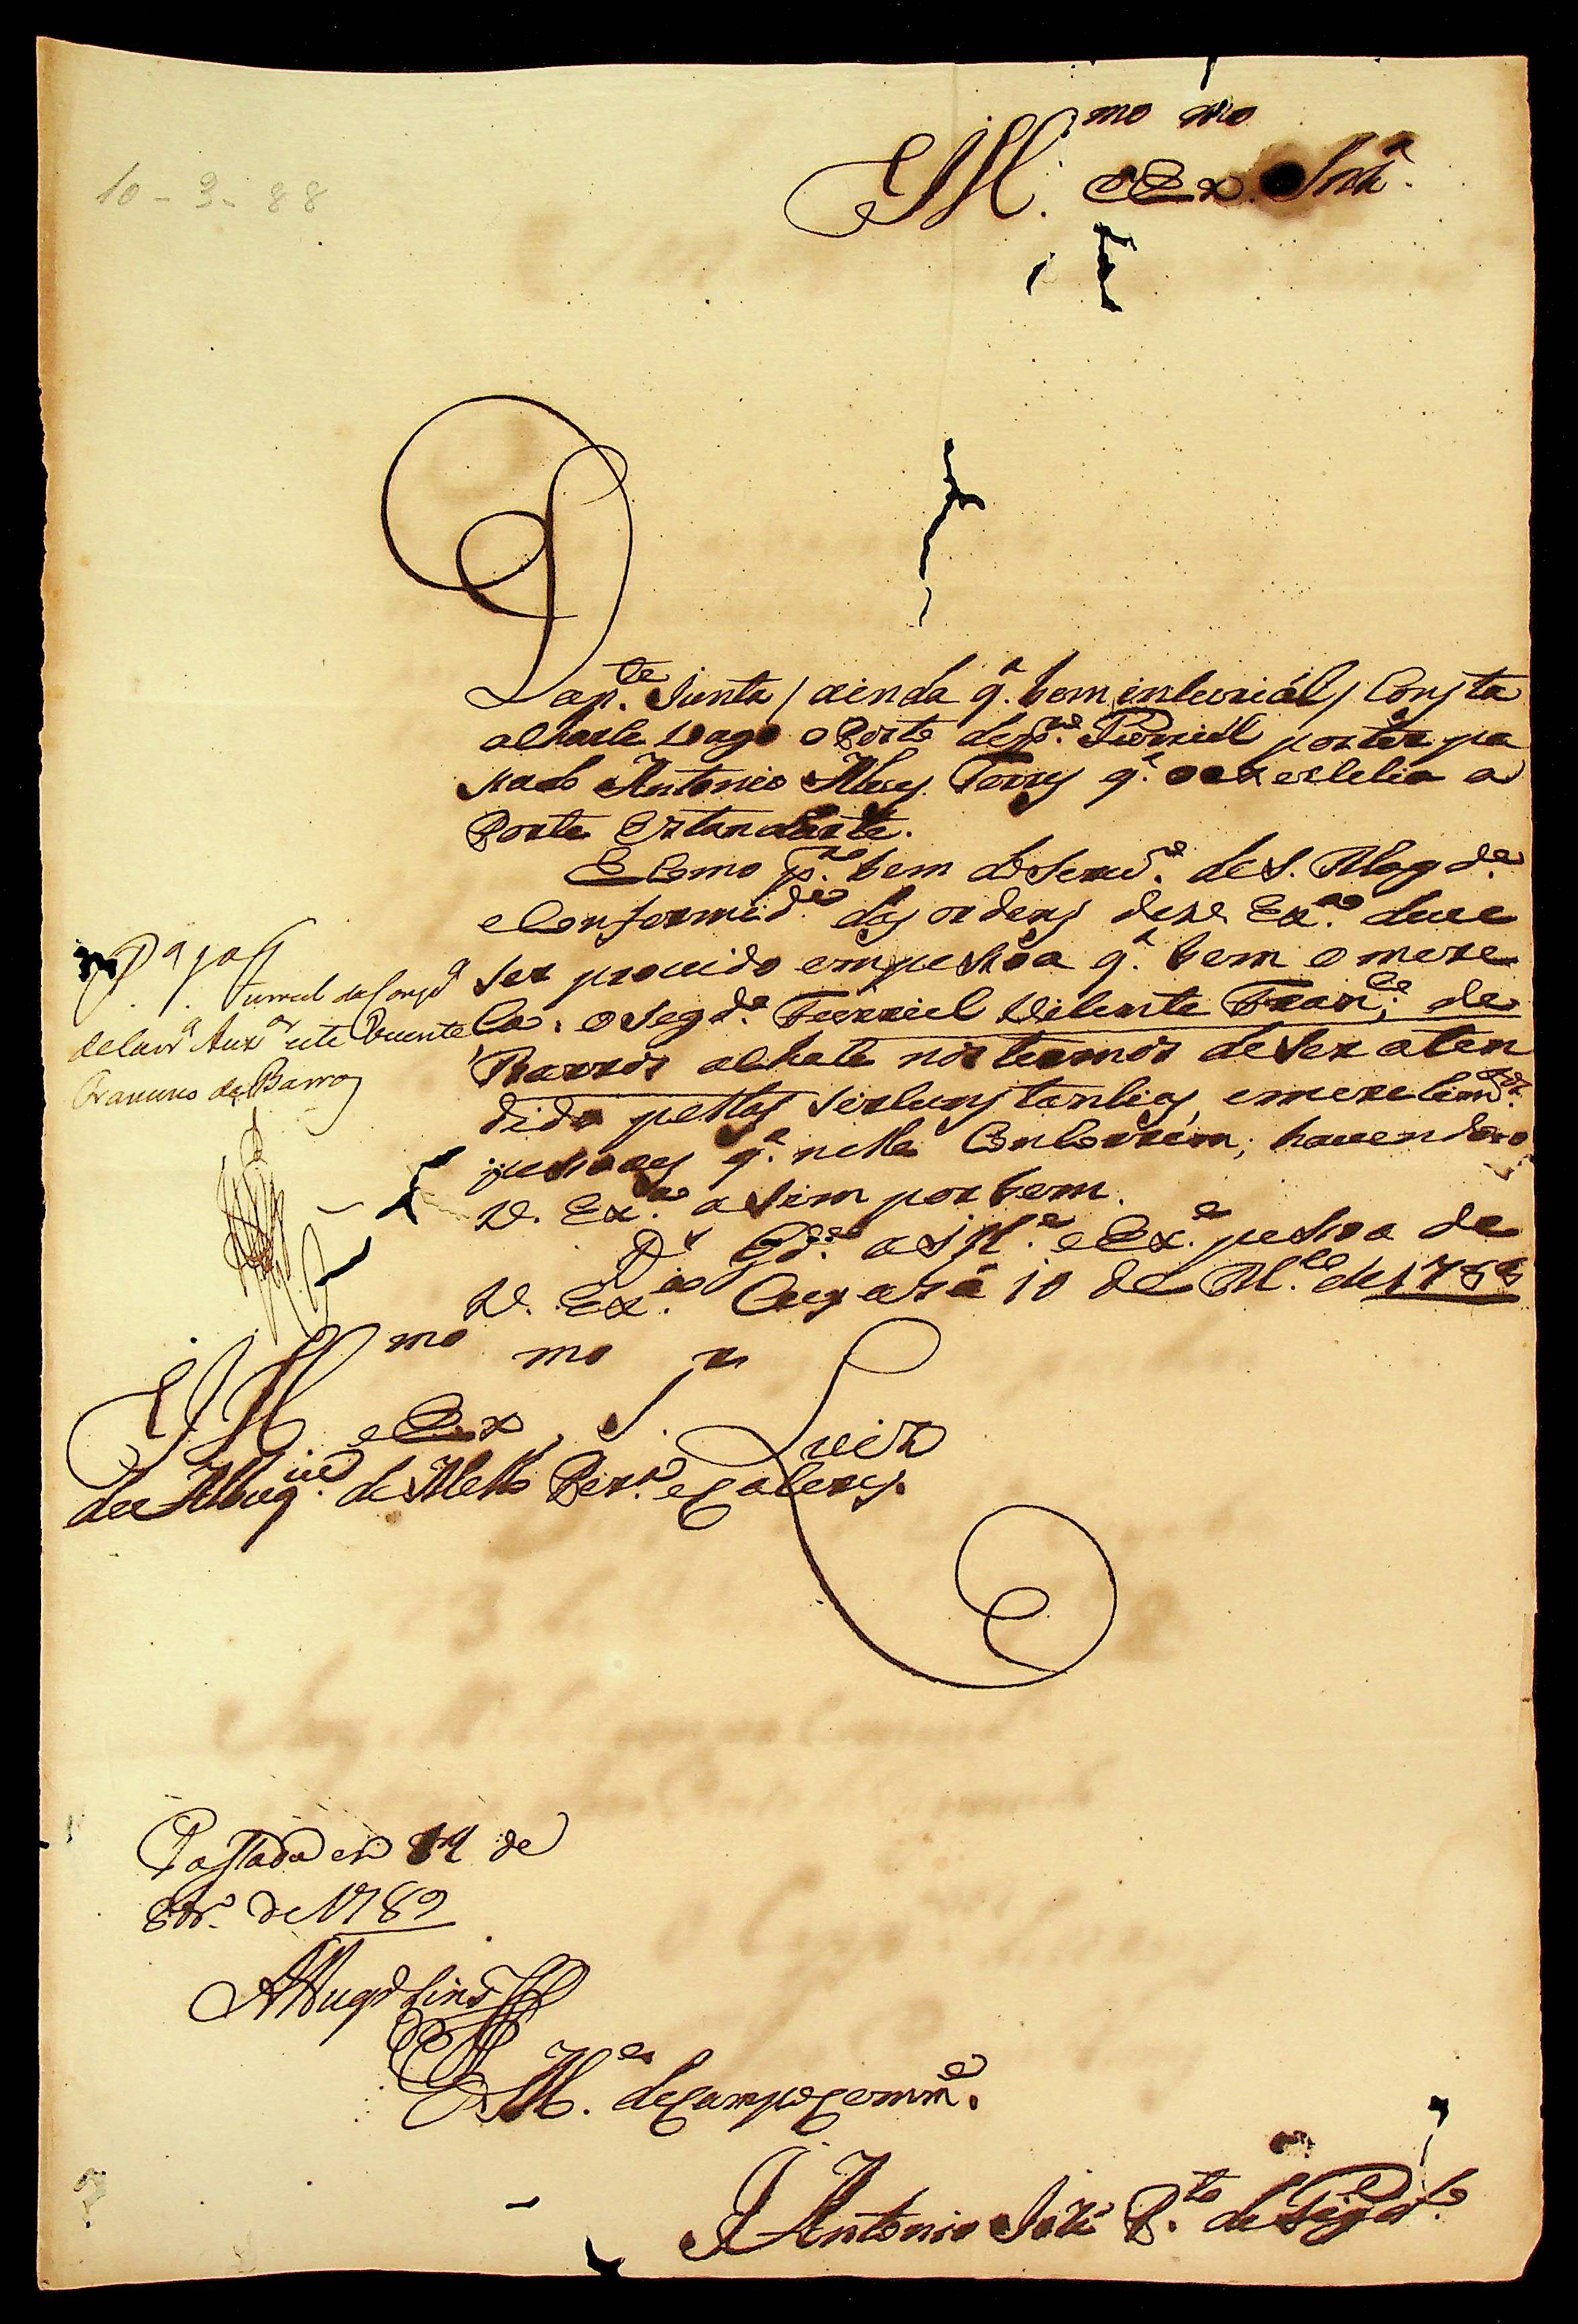 10-3-88
Ill.mo e Ex.mo Snr.
Da p.te Junta / ainda q. bem inlerial / Consta
acharse Vago o Posto de p.ro Furriel por ter pa
sado Antonio Alvs Ferrs q. o exercicia a
Porta Estandarte.
E como p.a bem do Serv.o de S. Mag.de
e Conformid.e das ordens de V. Ex.a deve
ser provido em pesoa q. bem o mere-
ca, o Seg.do Furriel Vicente Fran.co de
Barros achase nos termos de ser aten
dido pellas sircunstancias, e merecim.tos
pesoaes q. nelle Concorrem, havendoo
V. Ex.a asim por bem.
D.s G.de a Ill.a e Ex.a pesoa de
V. Ex.a Cuyabá 10 de M.co de 1788
Pasou
Furriel da Comp.a
de Cav.a Aux.ar este Vicente
Francisco de Barros
Ill.mo e Ex.mo S.r Luiz
de Albuq.ue de Mello Per.a e Caceres.
Passada em 14 de
8br.o de 1789
Albuq.e Lins
O M.e de Campo Comm.e
Antonio José P.to de Figd.o